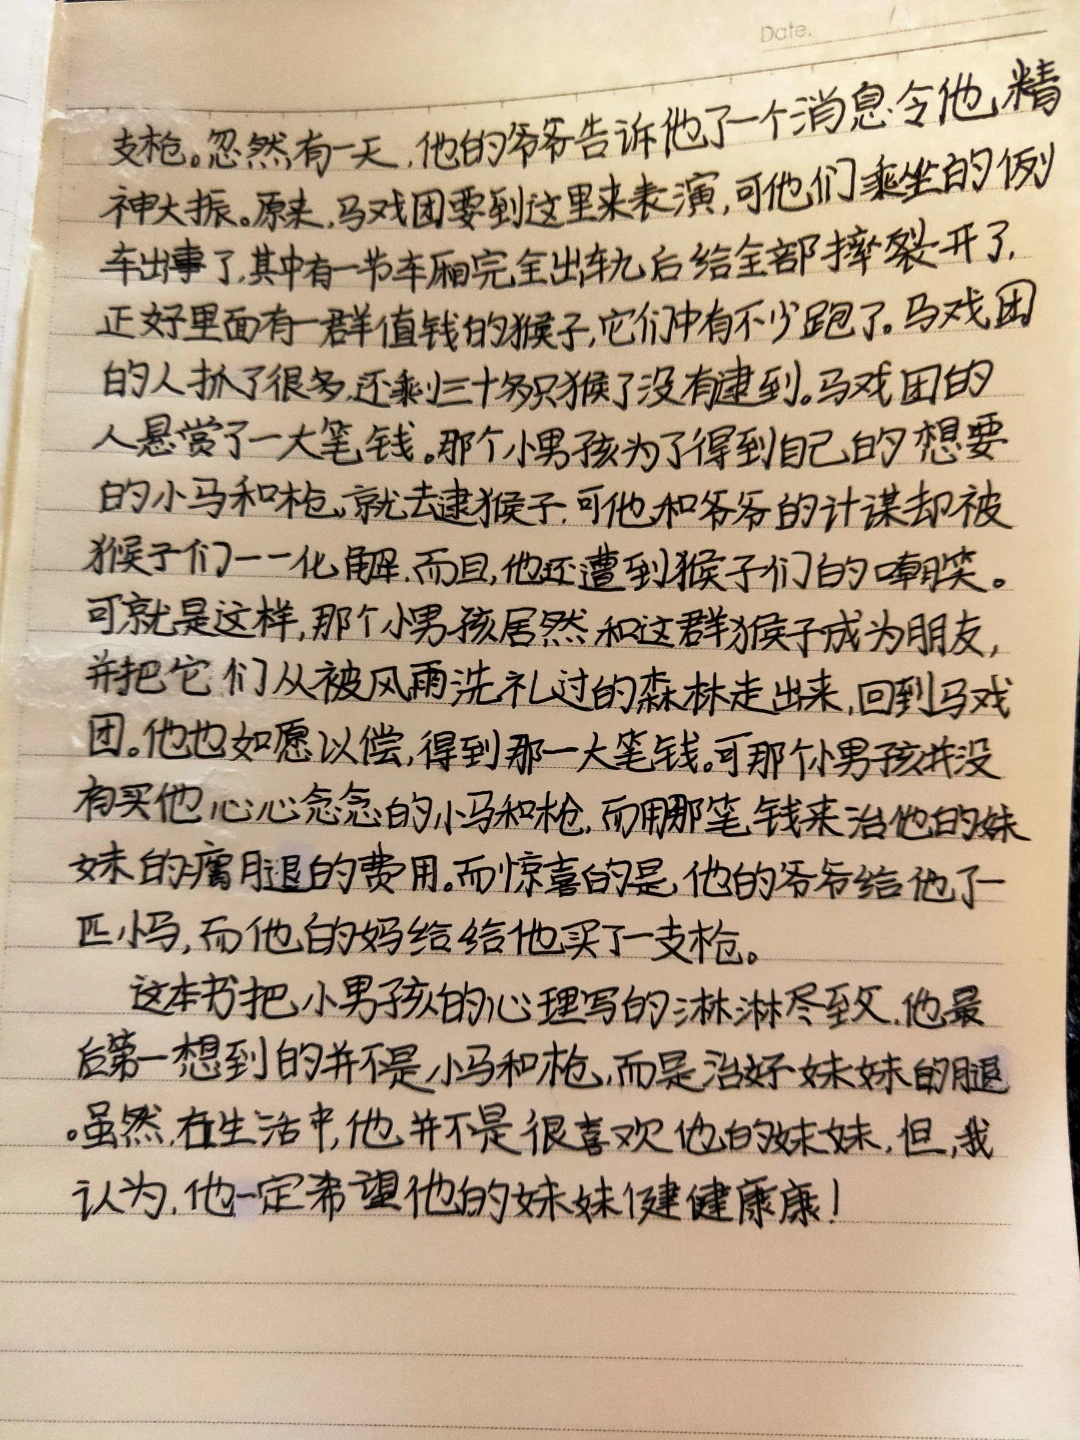 Date.
支枪。忽然,有一天,他的爷爷告诉他了一个消息,令他,精
神大振。原来,马戏团要到这里来表演,可他们乘坐的列
车出事了,其中有一节车厢完全出轨后给全部摔裂开了,
正好里面有一群值钱的猴子,它们中有不少跑了。马戏团
的人抓了很多,还剩三十多只猴子没有逮到。马戏团的
人悬赏了一大笔钱。那个小男孩为了得到自己的想要
的小马和枪,就去逮猴子,可他和爷爷的计谋却被
猴子们一一化解,而且,他还遭到猴子们的嘲笑。
可就是这样,那个小男孩居然和这群猴子成为朋友,
并把它们从被风雨洗礼过的森林走出来,回到马戏
团。他也如愿以偿,得到那一大笔钱。可那个小男孩并没
有买他心心念念的小马和枪,而用那笔钱来治他的妹
妹的瘸腿的费用。而惊喜的是,他的爷爷给他了一
匹小马,而他的妈给给他买了一支枪。
这本书把小男孩的心理写的淋淋尽致,他最
后第一想到的并不是小马和枪,而是治好妹妹的腿
。虽然,在生活中,他并不是很喜欢他的妹妹,但,我
认为,他一定希望他的妹妹健健康康!